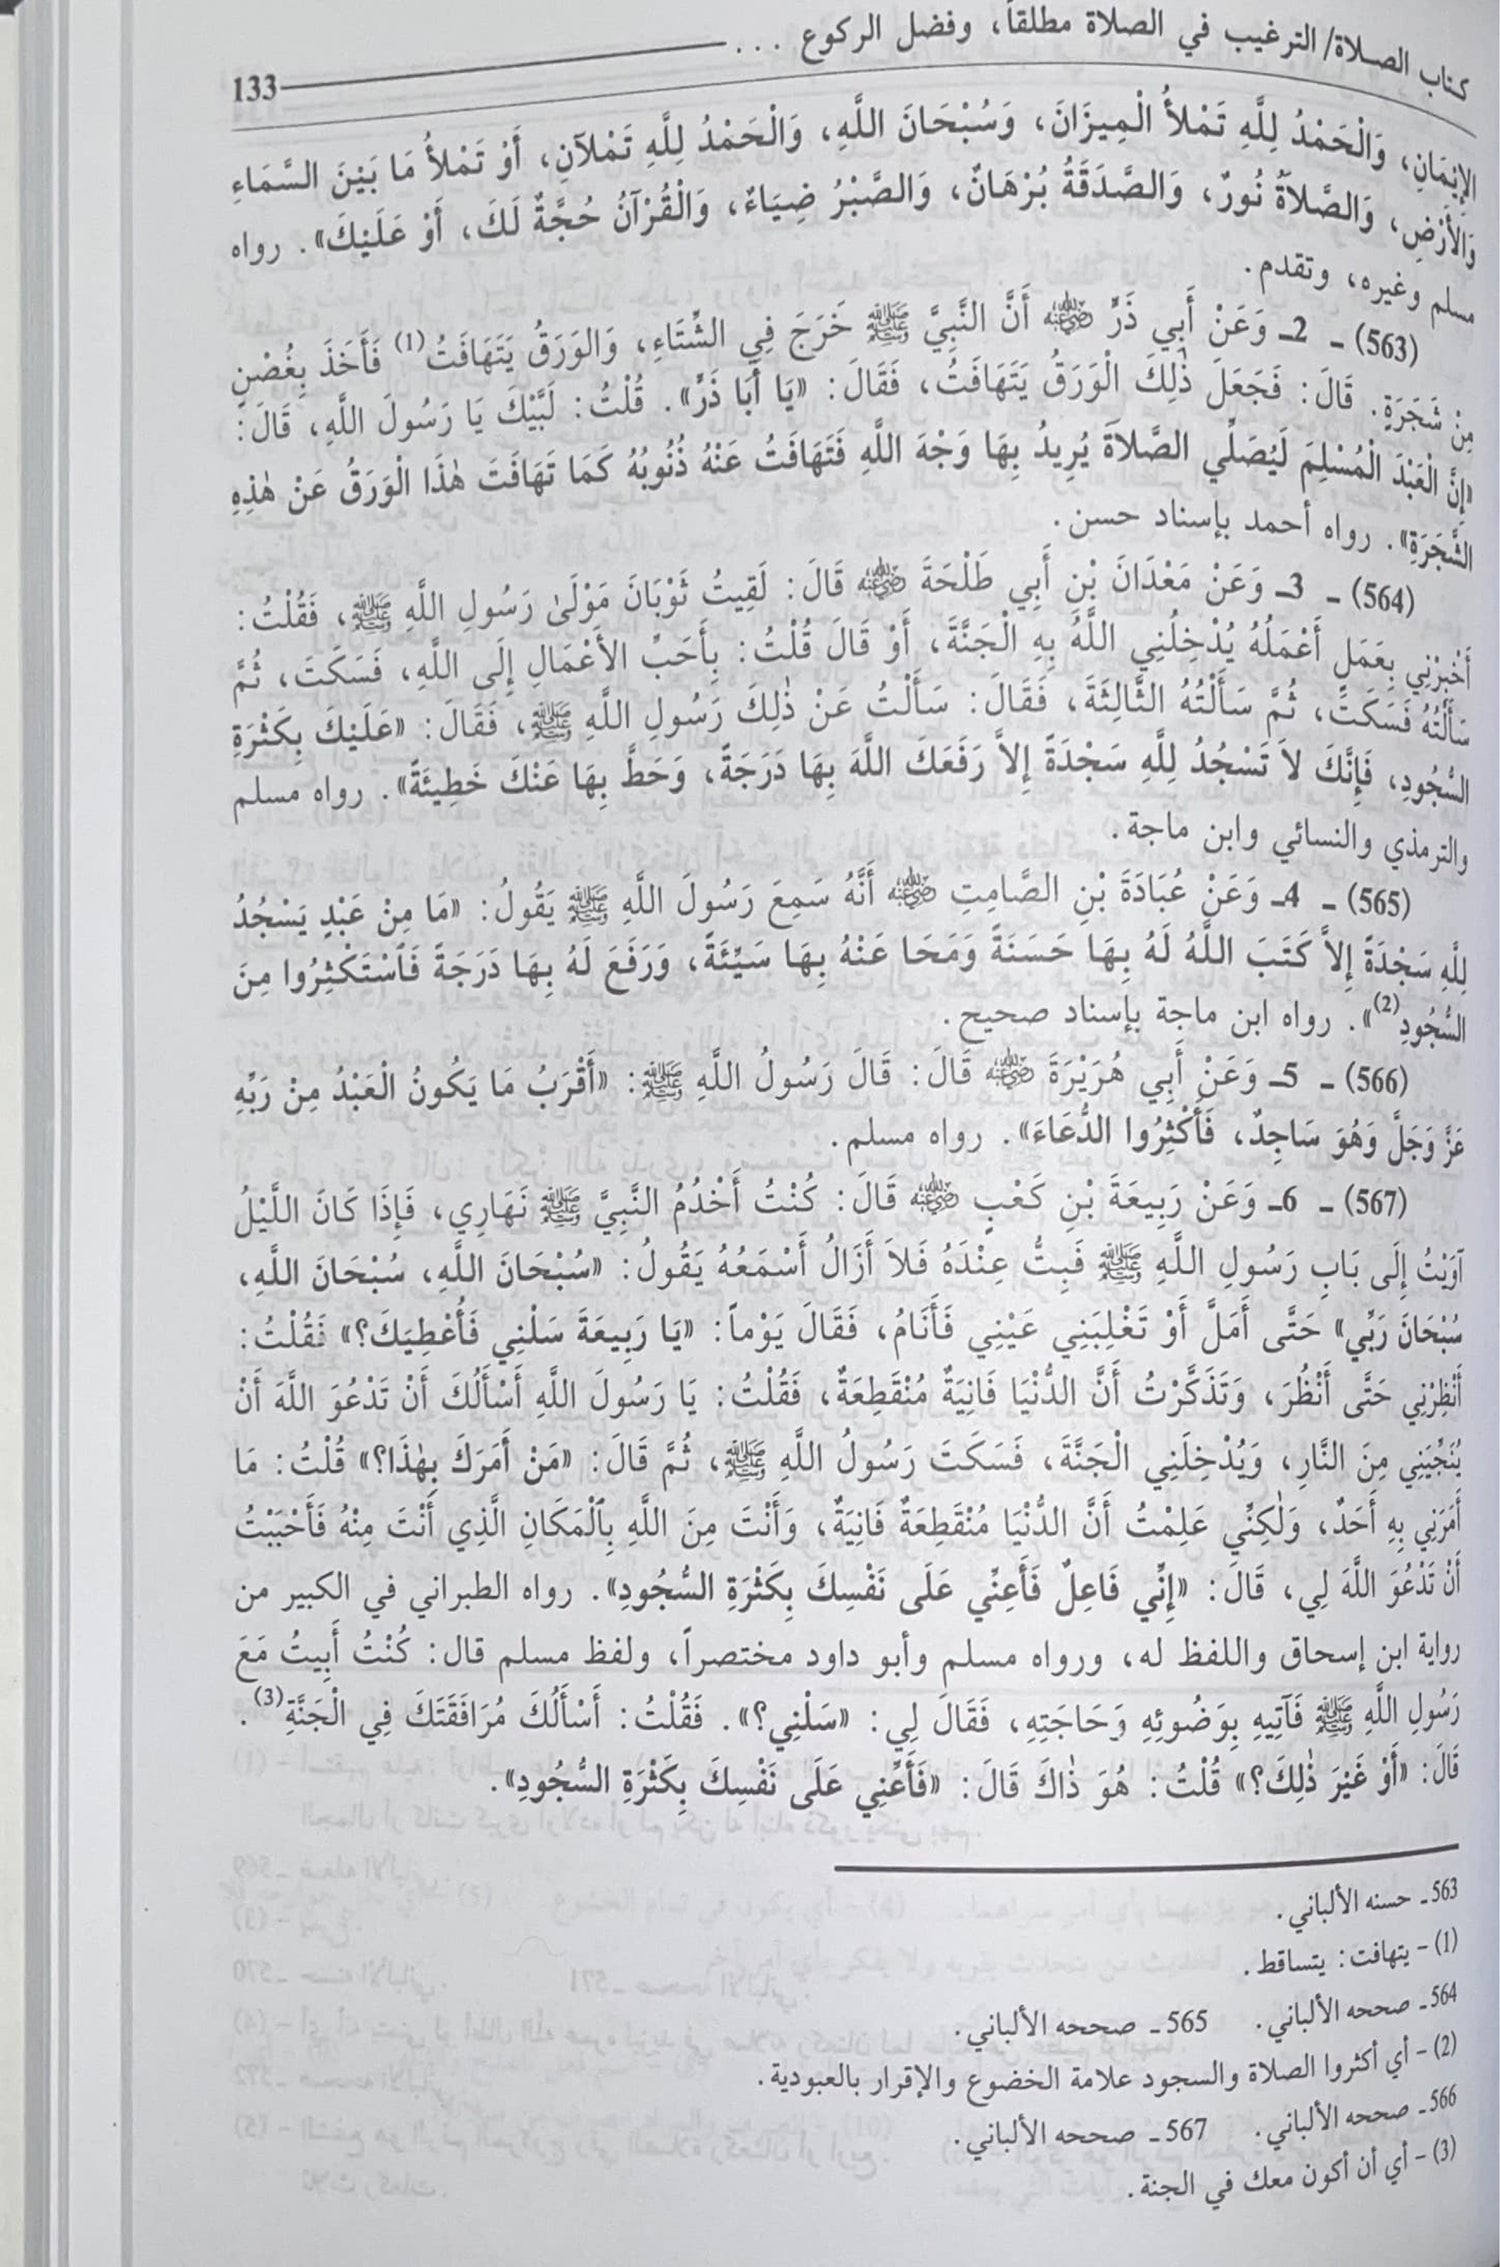 كتاب الصلاة/ الترغيب في الصلاة مطلقاً، وفضل الركوع ... 133
الإِيْمَانِ، وَالْحَمْدُ لِلَّهِ تَمْلأُ الْمِيزَانَ، وَسُبْحَانَ اللَّهِ، وَالْحَمْدُ لِلَّهِ تَمْلآنِ، أَوْ تَمْلأُ مَا بَيْنَ السَّمَاءِ
وَالأَرْضِ، وَالصَّلاَةُ نُورٌ، وَالصَّدَقَةُ بُرْهَانٌ، وَالصَّبْرُ ضِيَاءٌ، وَالْقُرْآنُ حُجَّةٌ لَكَ، أَوْ عَلَيْكَ». رواه
مسلم وغيره، وتقدم.
(563) ـ 2ـ وَعَنْ أَبِي ذَرٍّ ﷺ أَنَّ النَّبِيَّ ﷺ خَرَجَ فِي الشِّتَاءِ، وَالوَرَقُ يَتَهَافَتُ(1) فَأَخَذَ بِغُصْنٍ
مِنْ شَجَرَةٍ. قَالَ: فَجَعَلَ ذٰلِكَ الْوَرَقُ يَتَهَافَتُ، فَقَالَ: «يَا أَبَا ذَرٍّ». قُلْتُ: لَبَّيْكَ يَا رَسُولَ اللَّهِ، قَالَ:
«إِنَّ الْعَبْدَ الْمُسْلِمَ لَيُصَلِّي الصَّلاَةَ يُرِيدُ بِهَا وَجْهَ اللَّهِ فَتَهَافَتُ عَنْهُ ذُنُوبُهُ كَمَا تَهَافَتَ هٰذَا الْوَرَقُ عَنْ هٰذِهِ
الشَّجَرَةِ». رواه أحمد بإسناد حسن.
(564) ـ 3ـ وَعَنْ مَعْدَانَ بْنِ أَبِي طَلْحَةَ رضي الله عنه قَالَ: لَقِيتُ ثَوْبَانَ مَوْلَىٰ رَسُولِ اللَّهِ ﷺ، فَقُلْتُ:
أَخْبِرْنِي بِعَمَلٍ أَعْمَلُهُ يُدْخِلُنِي اللَّهُ بِهِ الْجَنَّةَ، أَوْ قَالَ قُلْتُ: بِأَحَبِّ الأَعْمَالِ إِلَى اللَّهِ، فَسَكَتَ، ثُمَّ
سَأَلْتُهُ فَسَكَتَ، ثُمَّ سَأَلْتُهُ الثَّالِثَةَ، فَقَالَ: سَأَلْتُ عَنْ ذٰلِكَ رَسُولَ اللَّهِ ﷺ، فَقَالَ: «عَلَيْكَ بِكَثْرَةِ
السُّجُودِ، فَإِنَّكَ لاَ تَسْجُدُ لِلَّهِ سَجْدَةً إِلاَّ رَفَعَكَ اللَّهُ بِهَا دَرَجَةً، وَحَطَّ بِهَا عَنْكَ خَطِيئَةً». رواه مسلم
والترمذي والنسائي وابن ماجة.
(565) ـ 4ـ وَعَنْ عُبَادَةَ بْنِ الصَّامِتِ رضي الله عنه أَنَّهُ سَمِعَ رَسُولَ اللَّهِ ﷺ يَقُولُ: «مَا مِنْ عَبْدٍ يَسْجُدُ
لِلَّهِ سَجْدَةً إِلاَّ كَتَبَ اللَّهُ لَهُ بِهَا حَسَنَةً وَمَحَا عَنْهُ بِهَا سَيِّئَةً، وَرَفَعَ لَهُ بِهَا دَرَجَةً فَاسْتَكْثِرُوا مِنَ
السُّجُودِ(2)». رواه ابن ماجة بإسناد صحيح.
(566) ـ 5ـ وَعَنْ أَبِي هُرَيْرَةَ رضي الله عنه قَالَ: قَالَ رَسُولُ اللَّهِ ﷺ: «أَقْرَبُ مَا يَكُونُ الْعَبْدُ مِنْ رَبِّهِ
عَزَّ وَجَلَّ وَهُوَ سَاجِدٌ، فَأَكْثِرُوا الدُّعَاءَ». رواه مسلم.
(567) ـ 6ـ وَعَنْ رَبِيعَةَ بْنِ كَعْبٍ رضي الله عنه قَالَ: كُنْتُ أَخْدُمُ النَّبِيَّ ﷺ نَهَارِي، فَإِذَا كَانَ اللَّيْلُ
آوَيْتُ إِلَى بَابِ رَسُولِ اللَّهِ ﷺ فَبِتُّ عِنْدَهُ فَلاَ أَزَالُ أَسْمَعُهُ يَقُولُ: «سُبْحَانَ اللَّهِ، سُبْحَانَ اللَّهِ،
سُبْحَانَ رَبِّي» حَتَّى أَمَلَّ أَوْ تَغْلِبَنِي عَيْنِي فَأَنَامُ، فَقَالَ يَوْماً: «يَا رَبِيعَةَ سَلْنِي فَأُعْطِيَكَ؟» فَقُلْتُ:
أَنْظِرْنِي حَتَّى أَنْظُرَ، وَتَذَكَّرْتُ أَنَّ الدُّنْيَا فَانِيَةٌ مُنْقَطِعَةٌ، فَقُلْتُ: يَا رَسُولَ اللَّهِ أَسْأَلُكَ أَنْ تَدْعُوَ اللَّهَ أَنْ
يُنَجِّيَنِي مِنَ النَّارِ، وَيُدْخِلَنِي الْجَنَّةَ، فَسَكَتَ رَسُولُ اللَّهِ ﷺ، ثُمَّ قَالَ: «مَنْ أَمَرَكَ بِهٰذَا؟» قُلْتُ: مَا
أَمَرَنِي بِهِ أَحَدٌ، وَلٰكِنِّي عَلِمْتُ أَنَّ الدُّنْيَا مُنْقَطِعَةٌ فَانِيَةٌ، وَأَنْتَ مِنَ اللَّهِ بِالْمَكَانِ الَّذِي أَنْتَ مِنْهُ فَأَحْبَبْتُ
أَنْ تَدْعُوَ اللَّهَ لِي، قَالَ: «إِنِّي فَاعِلٌ فَأَعِنِّي عَلَى نَفْسِكَ بِكَثْرَةِ السُّجُودِ». رواه الطبراني في الكبير من
رواية ابن إسحاق واللفظ له، ورواه مسلم وأبو داود مختصراً، ولفظ مسلم قال: كُنْتُ أَبِيتُ مَعَ
رَسُولِ اللَّهِ ﷺ فَآتِيهِ بِوَضُوئِهِ وَحَاجَتِهِ، فَقَالَ لِي: «سَلْنِي؟». فَقُلْتُ: أَسْأَلُكَ مُرَافَقَتَكَ فِي الْجَنَّةِ(3).
قَالَ: «أَوْ غَيْرَ ذٰلِكَ؟» قُلْتُ: هُوَ ذٰاكَ قَالَ: «فَأَعِنِّي عَلَى نَفْسِكَ بِكَثْرَةِ السُّجُودِ».
563ـ حسنه الألباني.
(1) – يتهافت: يتساقط.
564ـ صححه الألباني. 565ـ صححه الألباني.
(2) – أي أكثروا الصلاة والسجود علامة الخضوع والإقرار بالعبودية.
566ـ صححه الألباني. 567ـ صححه الألباني.
(3) – أي أن أكون معك في الجنة.